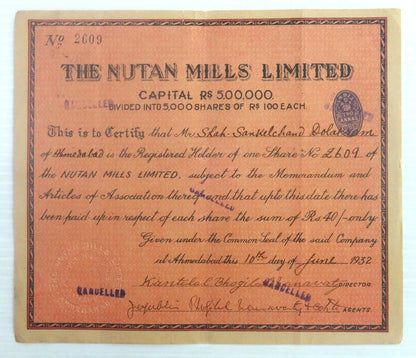 No 2609
THE NUTAN MILLS LIMITED
CAPITAL RS 5,00,000.
CANCELLED
DIVIDED INTO 5,000 SHARES OF RS 100 EACH.
This is to Certify that Mr Shah-Sankelchand Dolatram
of Ahmedabad is the Registered Holder of one Share No 2609 of
the NUTAN MILLS LIMITED, subject to the Memorandum and
Articles of Association thereof and that upto this date there has
CANCELLED
been paid up in respect of each share the sum of Rs 40/- only
Given under the Common Seal of the said Company
at Ahmedabad this 10th day of June 1932
Kantilal Bhogilal Nanavati DIRECTOR
CANCELLED
CANCELLED
AGENTS